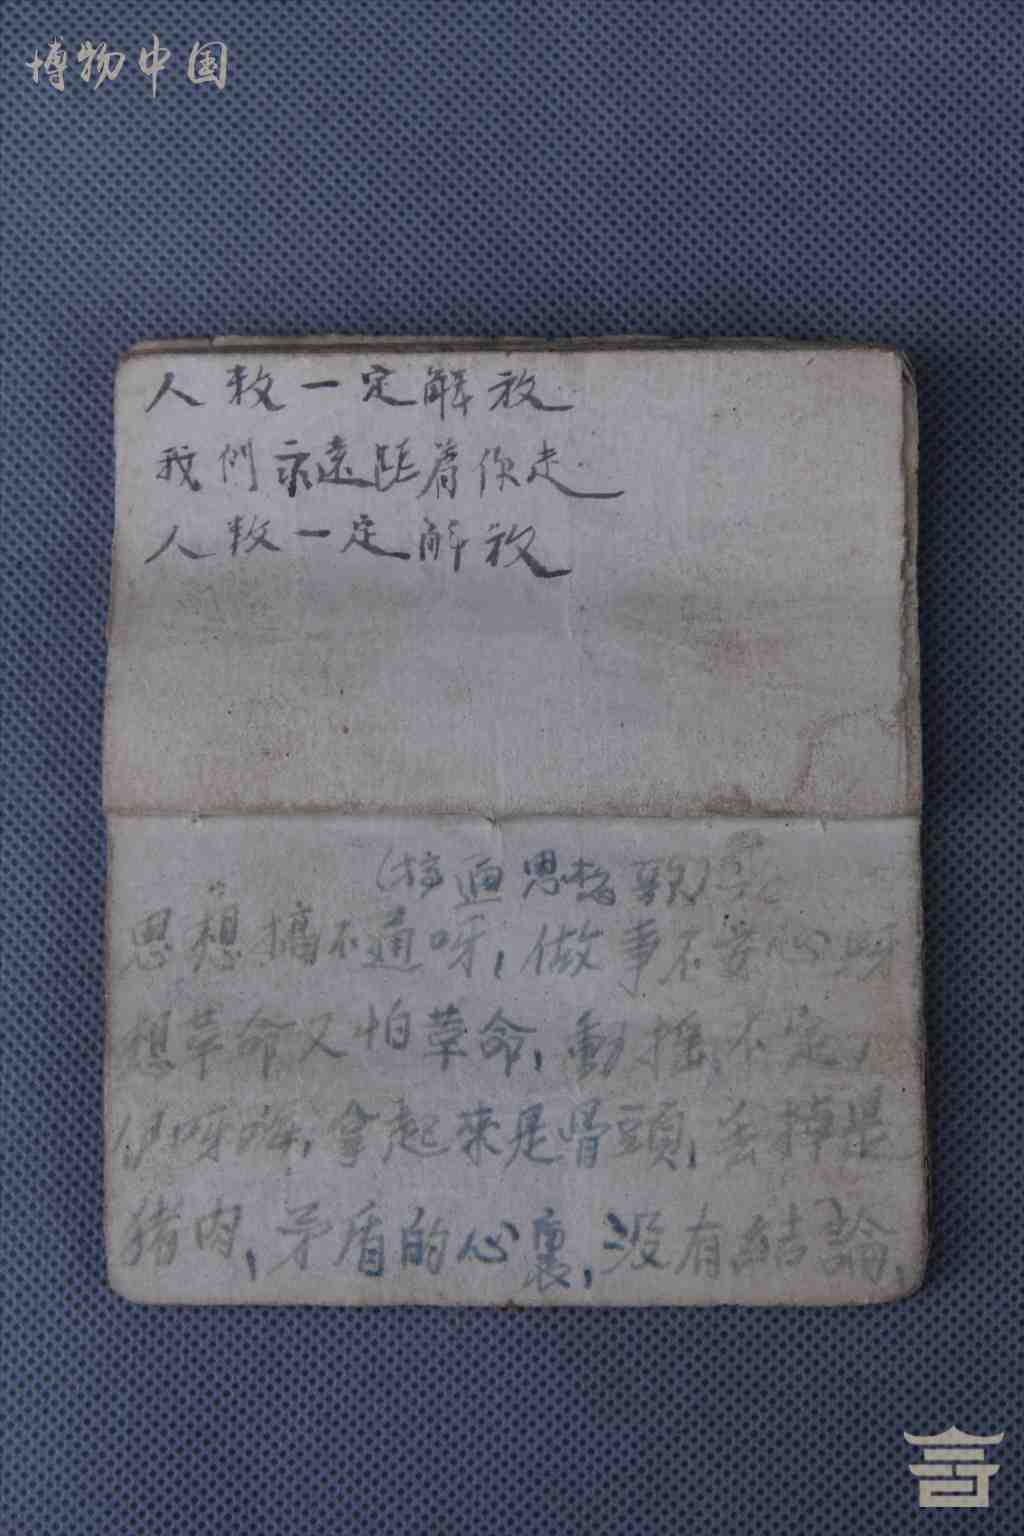 博物中国
人救一定解放
我們永遠跟着你走
人救一定解放
(搞通思想歌)
思想搞不通呀,做事不安心呀
想革命又怕革命,動搖不定,
伊呀呀,拿起來是骨頭,丢掉是
猪肉,矛盾的心裏,没有結論,